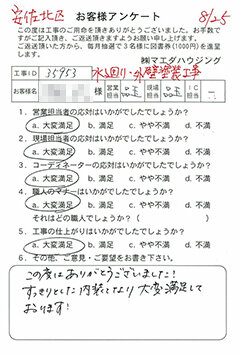 安佐北区 お客様アンケート 8/25
この度は工事のご用命を頂きありがとうございました。お手数で
すがご記入頂き、ご返送頂きますようお願い申し上げます。
ご返送頂いた方から、毎月抽選で3名様に図書券(1000円)を進呈
します。
㈱マエダハウジング
工事ID 35953 水回り・外壁塗装工事
お客様名 様 営業担当 現場担当
1. 営業担当者の応対はいかがでしたでしょうか?
a. 大変満足 b. 満足 c. やや不満 d. 不満
2. 現場担当者の応対はいかがでしたでしょうか?
a. 大変満足 b. 満足 c. やや不満 d. 不満
3. コーディネーターの応対はいかがでしたでしょうか?
a. 大変満足 b. 満足 c. やや不満 d. 不満
4. 職人のマナーはいかがでしたでしょうか?
a. 大変満足 b. 満足 c. やや不満 d. 不満
それはどの職人でしょうか?( )
5. 工事の仕上がりはいかがでしたでしょうか?
a. 大変満足 b. 満足 c. やや不満 d. 不満
6. その他、ご意見・ご要望をお書き下さい。
この度はありがとうございました!
すっきりとした内装となり大変満足して
おります!